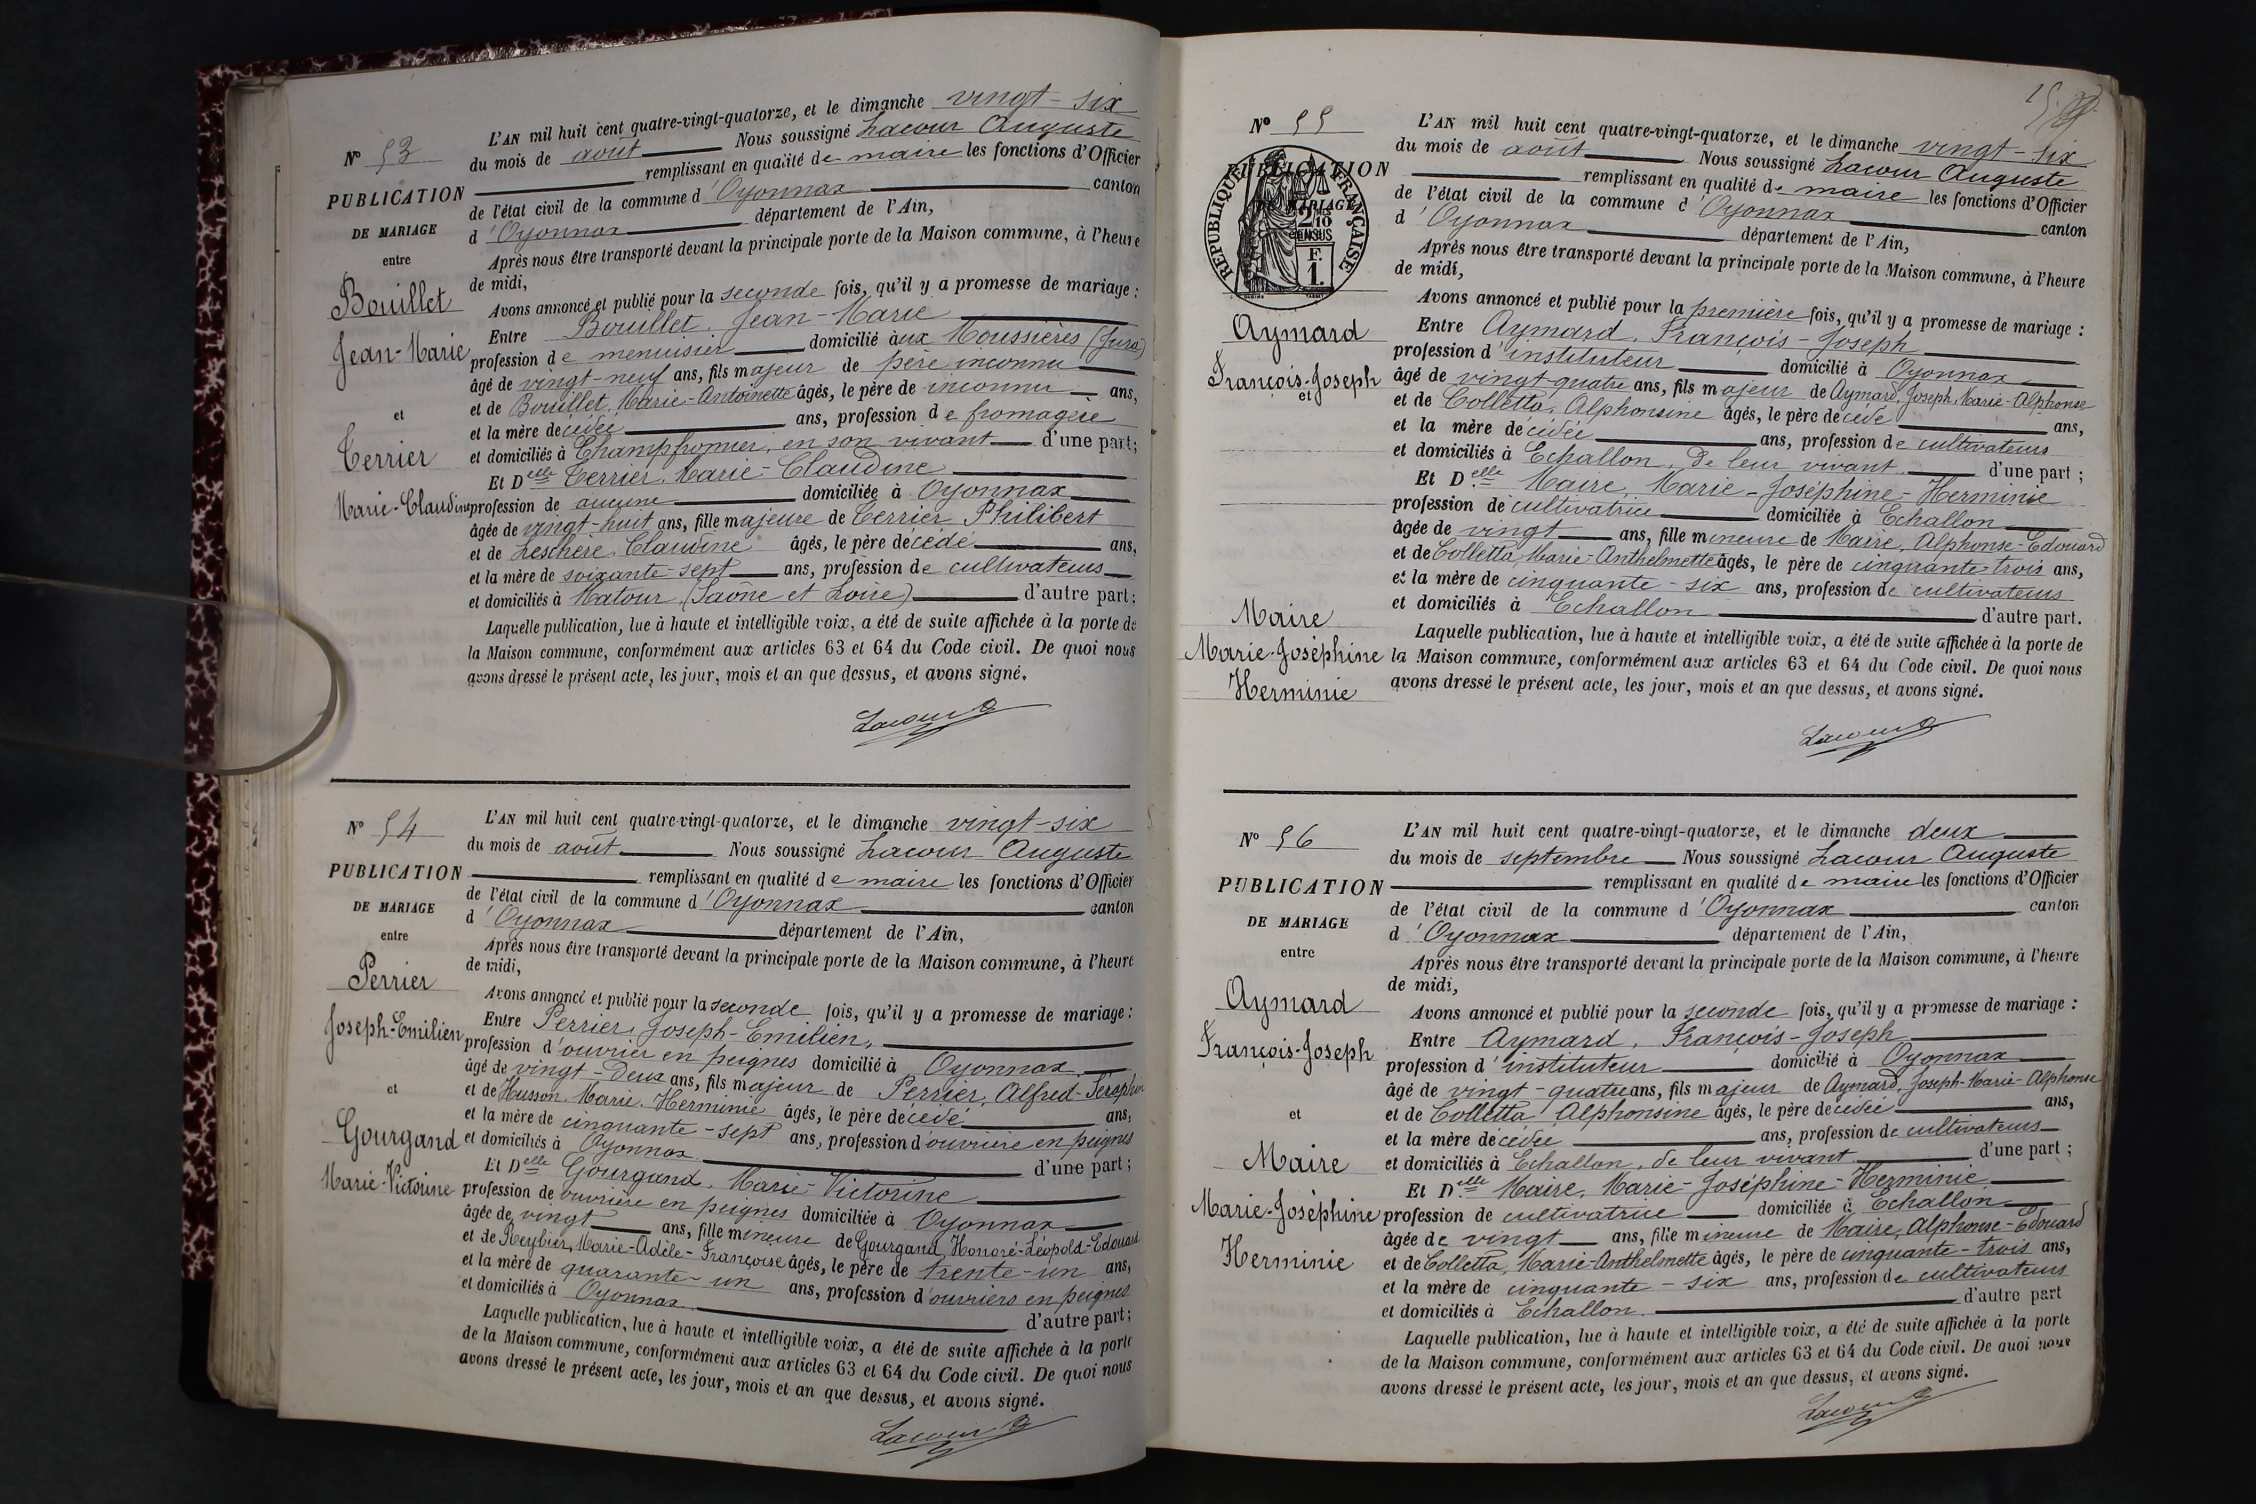 L'AN mil huit cent quatre-vingt-quatorze, et le dimanche vingt-six
du mois de août Nous soussigné Lacour Auguste
remplissant en qualité de maire les fonctions d'Officier
de l'état civil de la commune d'Oyonnax canton
d'Oyonnax département de l'Ain,
Après nous être transporté devant la principale porte de la Maison commune, à l'heure
de midi,
Avons annoncé et publié pour la seconde fois, qu'il y a promesse de mariage :
Entre Bouillet, Jean-Marie
profession de menuisier domicilié aux Moussières (Jura)
âgé de vingt-neuf ans, fils majeur de père inconnu
et de Bouillet, Marie-Antoinette âgés, le père de inconnu ans,
et la mère décédée ans, profession de fromagère
et domiciliés à Champfromier, en son vivant d'une part;
Et Delle Terrier, Marie-Claudine
profession de aucune domiciliée à Oyonnax
âgée de vingt-huit ans, fille majeure de Terrier Philibert
et de Leschère, Claudine âgés, le père décédé ans,
et la mère de soixante-sept ans, profession de cultivateurs
et domiciliés à Matour (Saône et Loire) d'autre part;
Laquelle publication, lue à haute et intelligible voix, a été de suite affichée à la porte de
la Maison commune, conformément aux articles 63 et 64 du Code civil. De quoi nous
avons dressé le présent acte, les jour, mois et an que dessus, et avons signé.
Lacour
N° 53
PUBLICATION
DE MARIAGE
entre
Bouillet
Jean-Marie
et
Terrier
Marie-Claudine
N° 54
PUBLICATION
DE MARIAGE
entre
Perrier
Joseph-Emilien
et
Gourgand
Marie-Victorine
L'AN mil huit cent quatre-vingt-quatorze, et le dimanche vingt-six
du mois de août Nous soussigné Lacour Auguste
remplissant en qualité de maire les fonctions d'Officier
de l'état civil de la commune d'Oyonnax canton
d'Oyonnax département de l'Ain,
Après nous être transporté devant la principale porte de la Maison commune, à l'heure
de midi,
Avons annoncé et publié pour la seconde fois, qu'il y a promesse de mariage :
Entre Perrier, Joseph-Emilien,
profession d'ouvrier en peignes domicilié à Oyonnax
âgé de vingt-deux ans, fils majeur de Perrier, Alfred-Séraphin
et de Husson, Marie, Herminie âgés, le père décédé ans,
et la mère de cinquante-sept ans, profession d'ouvrière en peignes
et domiciliés à Oyonnax d'une part;
Et Delle Gourgand, Marie-Victorine
profession de ouvrière en peignes domiciliée à Oyonnax
âgée de vingt ans, fille mineure de Gourgand, Honoré-Léopold-Edouard
et de Reybier, Marie-Adèle-Françoise âgés, le père de trente-un ans,
et la mère de quarante-un ans, profession d'ouvriers en peignes
et domiciliés à Oyonnax d'autre part;
Laquelle publication, lue à haute et intelligible voix, a été de suite affichée à la porte
de la Maison commune, conformément aux articles 63 et 64 du Code civil. De quoi nous
avons dressé le présent acte, les jour, mois et an que dessus, et avons signé.
Lacour
15
N° 55
PUBLICATION
DE MARIAGE
RÉPUBLIQUE FRANÇAISE
2/10
EN SUS
F.
1.
Aymard
François-Joseph
et
Maire
Marie-Joséphine
Herminie
L'AN mil huit cent quatre-vingt-quatorze, et le dimanche vingt-six
du mois de août Nous soussigné Lacour Auguste
remplissant en qualité de maire les fonctions d'Officier
de l'état civil de la commune d'Oyonnax
d'Oyonnax département de l'Ain, canton
Après nous être transporté devant la principale porte de la Maison commune, à l'heure
de midi,
Avons annoncé et publié pour la première fois, qu'il y a promesse de mariage :
Entre Aymard, François-Joseph
profession d'instituteur domicilié à Oyonnax
âgé de vingt-quatre ans, fils majeur de Aymard, Joseph, Marie-Alphonse
et de Colletta, Alphonsine âgés, le père décédé ans,
et la mère décédée ans, profession de cultivateurs
et domiciliés à Echallon, de leur vivant d'une part;
Et Delle Maire Marie-Joséphine-Herminie
profession de cultivatrice domiciliée à Echallon
âgée de vingt ans, fille mineure de Maire, Alphonse-Edouard
et de Colletta, Marie-Anthelmette âgés, le père de cinquante-trois ans,
et la mère de cinquante-six ans, profession de cultivateurs
et domiciliés à Echallon d'autre part.
Laquelle publication, lue à haute et intelligible voix, a été de suite affichée à la porte de
la Maison commune, conformément aux articles 63 et 64 du Code civil. De quoi nous
avons dressé le présent acte, les jour, mois et an que dessus, et avons signé.
Lacour
N° 56
PUBLICATION
DE MARIAGE
entre
Aymard
François-Joseph
et
Maire
Marie-Joséphine
Herminie
L'AN mil huit cent quatre-vingt-quatorze, et le dimanche deux
du mois de septembre Nous soussigné Lacour Auguste
remplissant en qualité de maire les fonctions d'Officier
de l'état civil de la commune d'Oyonnax canton
d'Oyonnax département de l'Ain,
Après nous être transporté devant la principale porte de la Maison commune, à l'heure
de midi,
Avons annoncé et publié pour la seconde fois, qu'il y a promesse de mariage :
Entre Aymard, François-Joseph
profession d'instituteur domicilié à Oyonnax
âgé de vingt-quatre ans, fils majeur de Aymard, Joseph-Marie-Alphonse
et de Colletta Alphonsine âgés, le père décédé ans,
et la mère décédée ans, profession de cultivateurs
et domiciliés à Echallon, de leur vivant d'une part;
Et Delle Maire, Marie-Joséphine-Herminie
profession de cultivatrice domiciliée à Echallon
âgée de vingt ans, fille mineure de Maire, Alphonse-Edouard
et de Colletta, Marie-Anthelmette âgés, le père de cinquante-trois ans,
et la mère de cinquante-six ans, profession de cultivateurs
et domiciliés à Echallon. d'autre part
Laquelle publication, lue à haute et intelligible voix, a été de suite affichée à la porte
de la Maison commune, conformément aux articles 63 et 64 du Code civil. De quoi nous
avons dressé le présent acte, les jour, mois et an que dessus, et avons signé.
Lacour